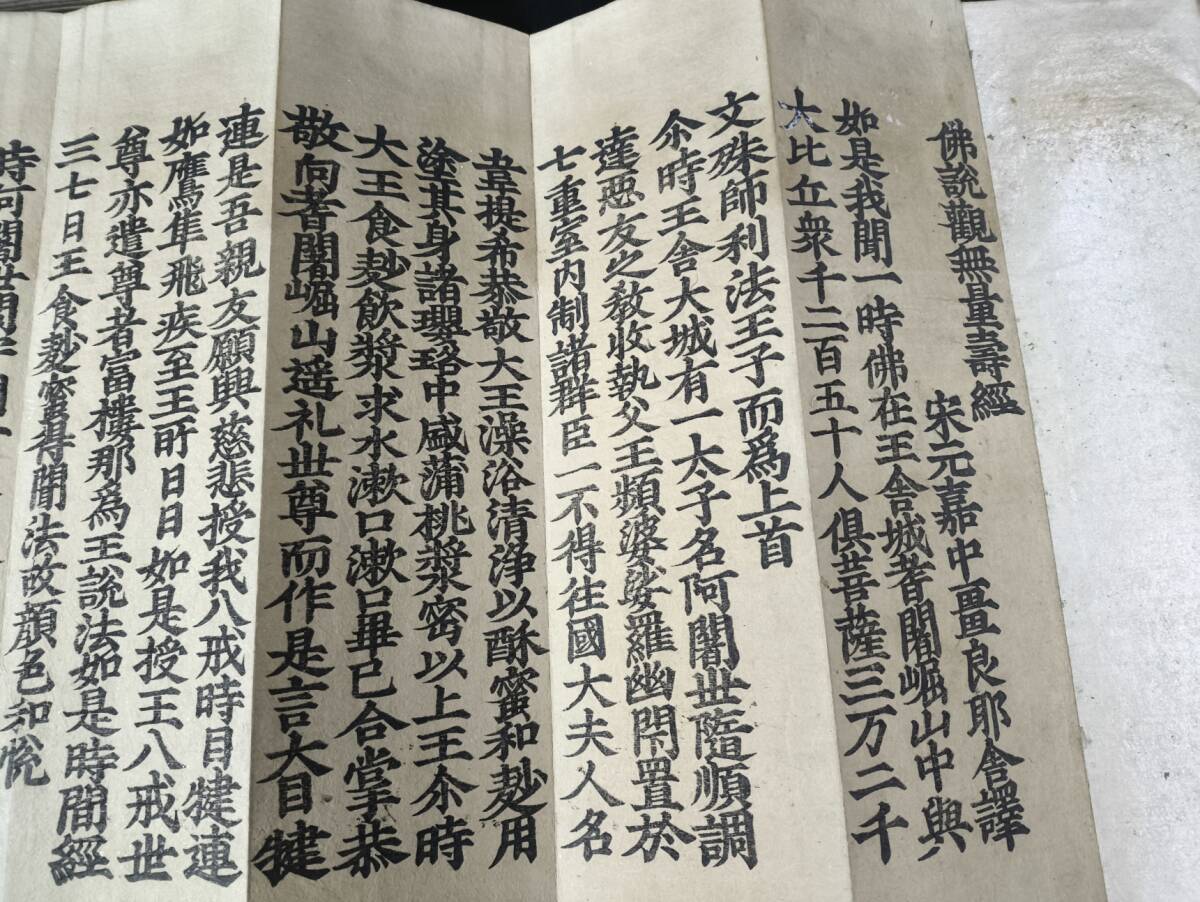 佛說觀無量壽經
宋元嘉中畺良耶舍譯
如是我聞一時佛在王舍城耆闍崛山中與
大比丘衆千二百五十人俱菩薩三万二千
文殊師利法王子而爲上首
尒時王舍大城有一太子名阿闍世隨順調
達惡友之敎收執父王頻婆娑羅幽閇置於
七重室內制諸群臣一不得往國大夫人名
韋提希恭敬大王澡浴清淨以酥蜜和麨用
塗其身諸瓔珞中盛蒲桃漿密以上王尒時
大王食麨飲漿求水漱口漱口畢已合掌恭
敬向耆闍崛山遥礼世尊而作是言大目揵
連是吾親友願興慈悲授我八戒時目揵連
如鷹隼飛疾至王所日日如是授王八戒世
尊亦遣尊者富樓那爲王說法如是時間經
三七日王食麨蜜得聞法故顔色和悅
時阿闍世問